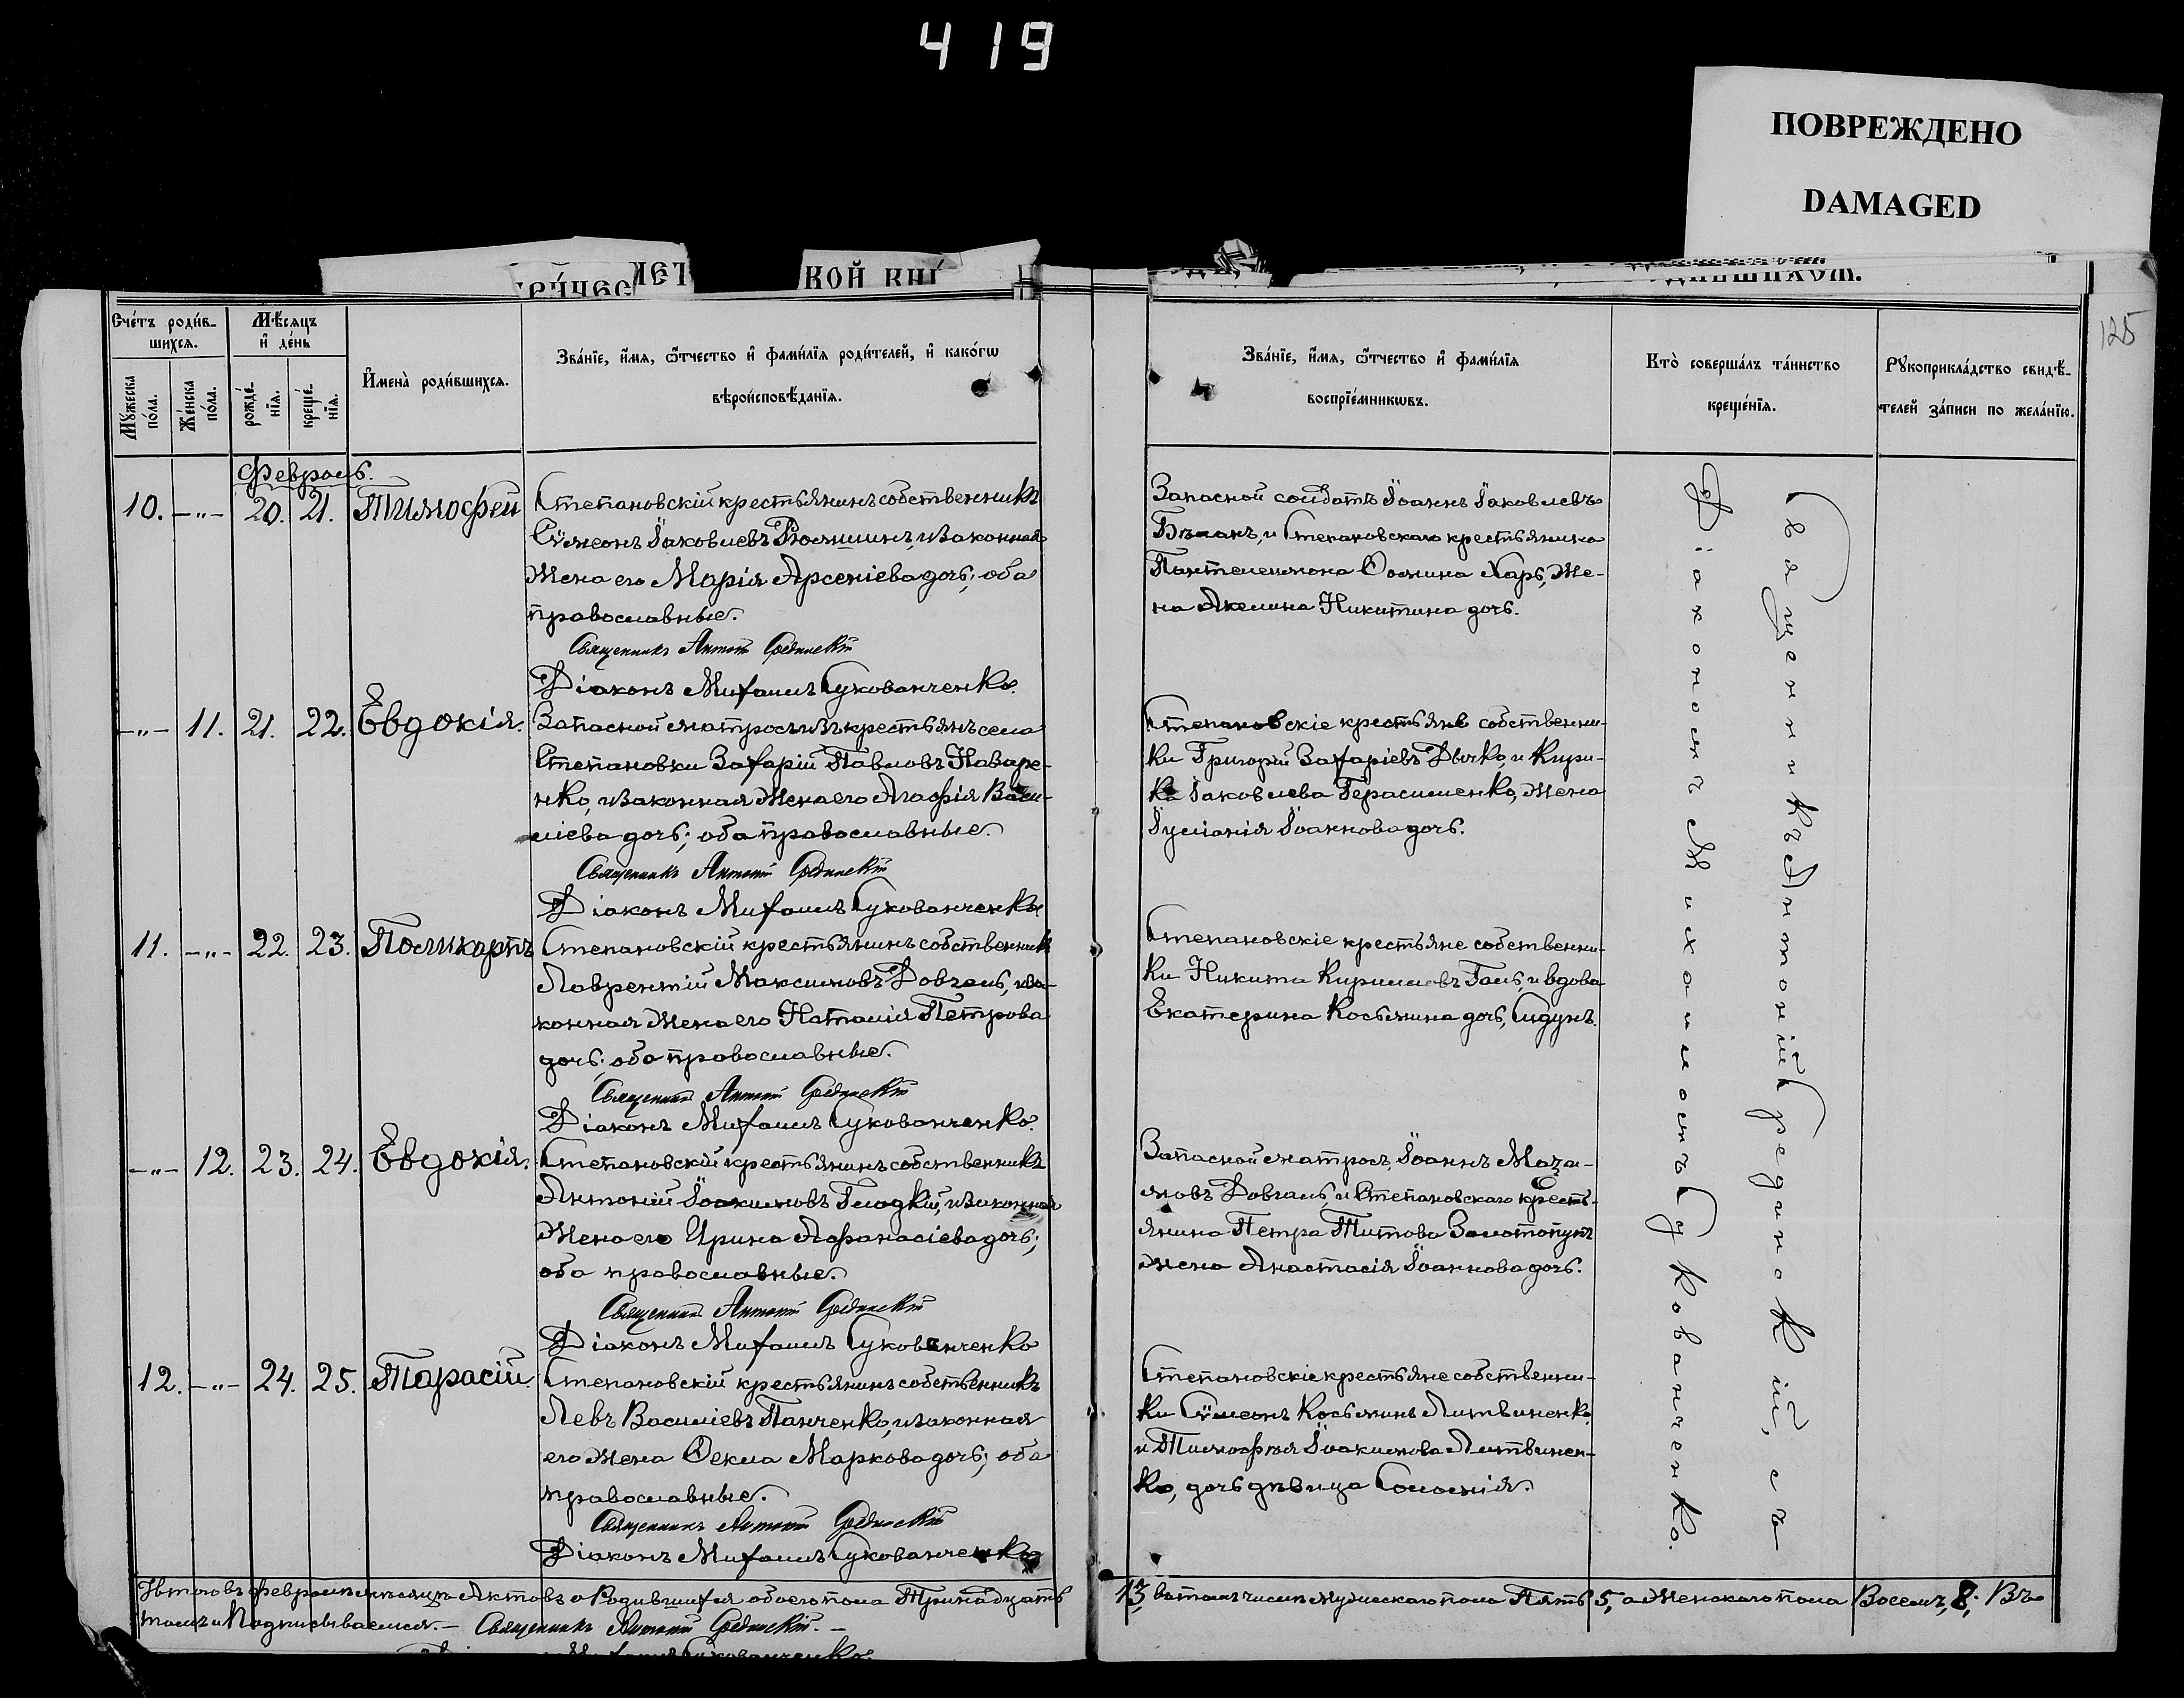 419
ПОВРЕЖДЕНО
DAMAGED
КОЙ КНИ
125
Счéтъ роди́в-
шихся.
Мужеска
по́ла.
Же́нска
по́ла.
Мѣ́сяцъ
и҆ де́нь
рожде́-
нїя.
креще́-
нїя.
И҆мена̀ роди́вшихся.
Зва́нїе, и҆́мя, ѻ҆́тчество и҆ фами́лїя роди́телей, и҆ како́гѡ
вѣроисповѣ́данїя.
Зва́нїе, и҆́мя, ѻ҆́тчество и҆ фами́лїя
воспрїе́мникѡвъ.
Кто̀ соверша́лъ та́инство
креще́нїя.
Рукоприкла́дство свидѣ́-
телей за́писи по жела́нїю.
Февраль.
10. -"- 20. 21. Тимоѳей
Степановскій крестьянинъ собственникъ
Сѵмеонъ Іаковлевъ Ромшинъ, и законная
жена его Марія Арсеніева дочь; оба
православные.
Священникъ Антоній Срединскій
Діаконъ Михаилъ Сукованченко.
Запасной солдатъ Іоаннъ Іаковлевъ
Бѣланъ, и Степановскаго крестьянина
Пантелеимона Ѳомина Харь, же-
на Акелина Никитина дочь.
-"- 11. 21. 22. Евдокія.
Запасной матросъ изъ крестьянъ села
Степановки Захарій Павловъ Назаре-
нко, и законная жена его Агафія Васи-
ліева дочь; оба православные.
Священникъ Антоній Срединскій
Діаконъ Михаилъ Сукованченко
Степановскіе крестьяне собственни-
ки Григорій Захаріевъ Дычко, и Кири-
ка Іаковлева Герасименко, жена
Іуліанія Іоаннова дочь.
11. -"- 22. 23. Поликарпъ
Степановскій крестьянинъ собственникъ
Лаврентій Максимовъ Довгаль, и за-
конная жена его Наталія Петрова
дочь; оба православные.
Священникъ Антоній Срединскій
Діаконъ Михаилъ Сукованченко.
Степановскіе крестьяне собственни-
ки Никита Кирилловъ Галь, и вдова
Екатерина Косьмина дочь, Сидунъ.
-"- 12. 23. 24. Евдокія.
Степановскій крестьянинъ собственникъ
Антоній Іоакимовъ Гладкій, и законная
жена его Ирина Аѳанасіева дочь;
оба православные.
Священникъ Антоній Срединскій
Діаконъ Михаилъ Сукованченко
Запасной матросъ Іоаннъ
Довгаль, и Степановскаго кресть-
янина Петра Титова Золотопупъ
жена Анастасія Іоаннова дочь.
12. -"- 24. 25. Тарасій.
Степановскій крестьянинъ собственникъ
Левъ Василіевъ Панченко, и законная
его жена Ѳекла Маркова дочь; оба
православные.
Священникъ Антоній Срединскій
Діаконъ Михаилъ Сукованченко
Степановскіе крестьяне собственни-
ки Сѵмеонъ Косьминъ Литвиненко,
и Тимоѳея Іоакимова Литвинен-
ко, дочь дѣвица Соломія.
Священникъ Антоній Срединскій, съ
Діакономъ Михаиломъ Сукованченко.
Итого въ февралѣ мѣсяцѣ Актовъ о Родившихся обоего пола Тринадцать 13, въ томъ числѣ мужескаго пола Пять 5, а женскаго пола Восемь, 8; Въ
томъ и Подписываемся. - Священникъ Антоній Срединскій. -
Михаилъ Сукованченко.